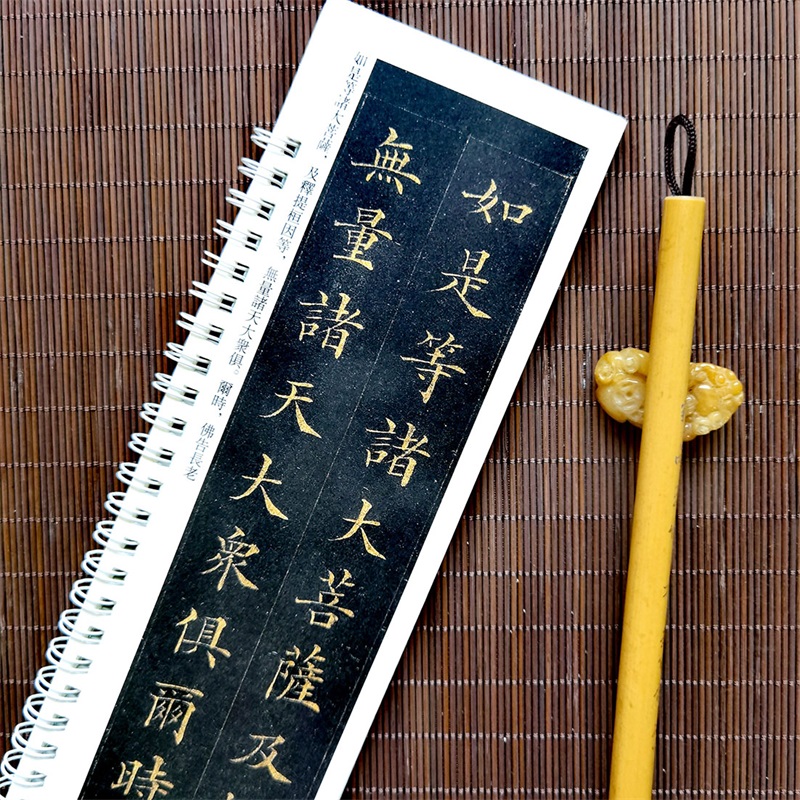 如是等諸大菩薩及
無量諸天大衆俱爾時
如是等諸大菩薩，及釋提桓因等，無量諸天大衆俱。爾時，佛告長老